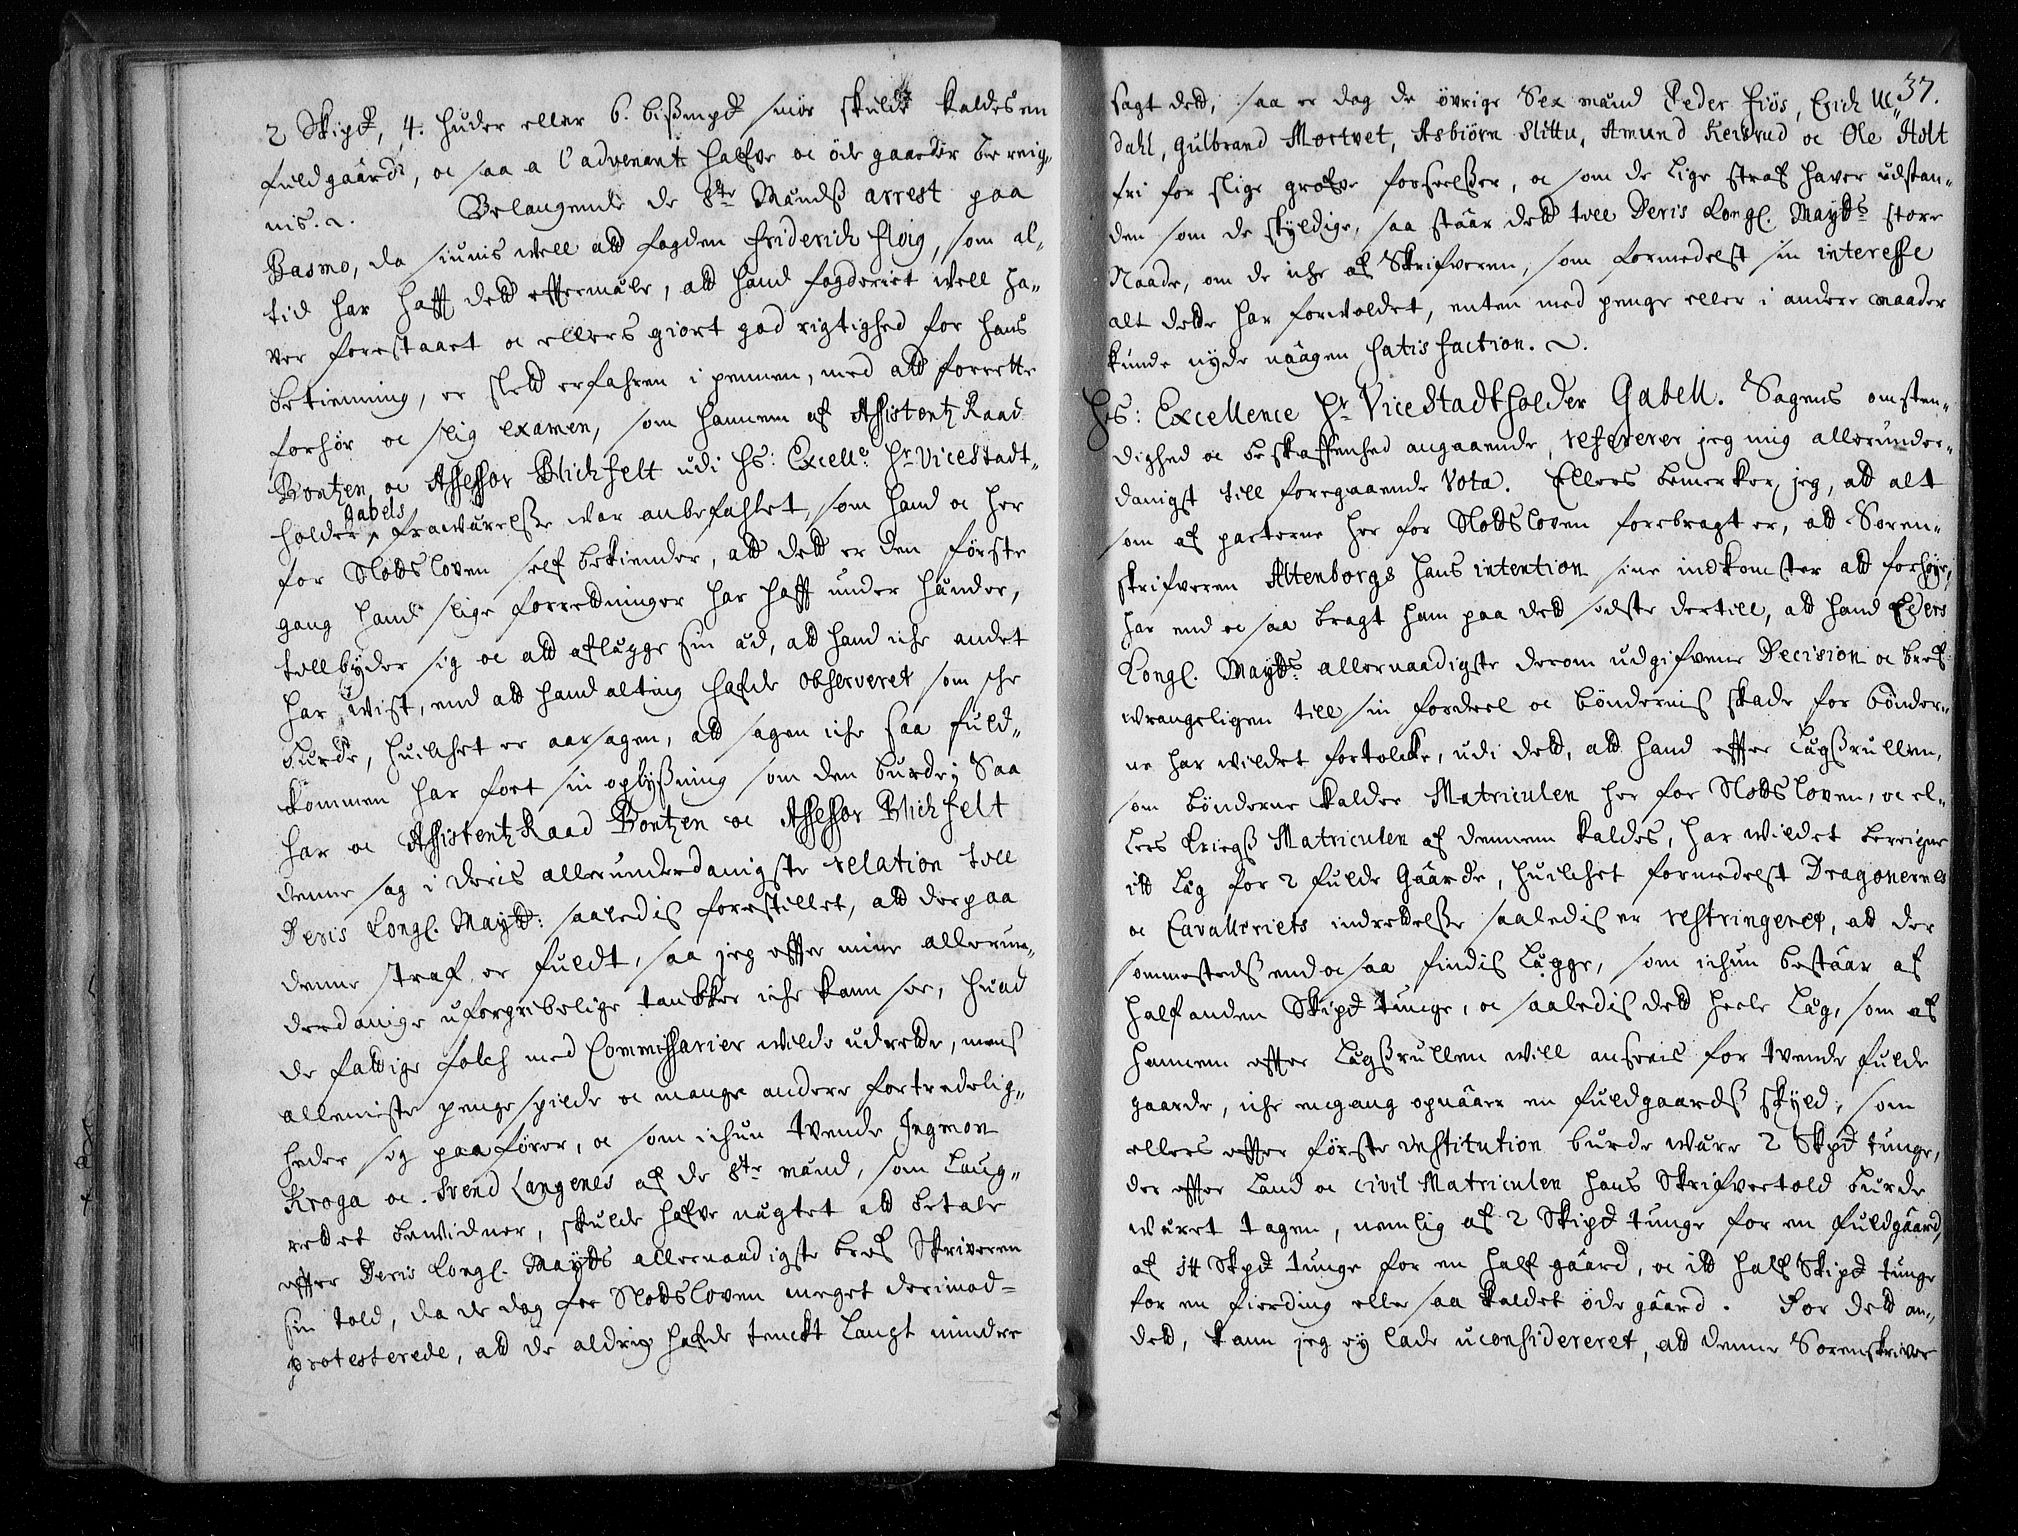 2 Skipd, 4. huder eller 6. bißmpd smør skulde kaldes en
fuldgaard, oc saa a l'advenant halfve oc øde gaarder bereig„
nis. Belangende de 8te Mændß arrest paa
Basmo, da siunis well att fogden Friderich Floig, som al„
tid har hafft dett effermæle, att hand fogderiet well ha„
ver forestaaet oc ellers giort god rigtighed for hans
betienning, er slett erfahren i pennen, med att forrette
forhør oc slig examen, som hannem af Assistentz Raad
Bontzen oc Assessor Blichfelt udi Hs: Excelle Hr ViceStadt„
holder Gabels frawærelße war anbefahlet, som hand oc her
for Slottsloven self bekiender, att dett er den første
gang hand slige forretninger har hafft under hænder,
tillbyder sig oc att aflægge sin æd, att hand iche andet
har wist, end att hand alting hafde observeret som sig
burde, huilchet er aarsagen, att sagen iche saa fuld„
kommen har faaet sin oplyßning som den burde; Saa
har oc Assistentz Raad Bontzen oc Assessor Blichfelt
denne sag i deris allerunderdanigste relation till
Deris Kongl. Maytt: saaledis forestillet, att derpaa
denne straf er fuldt, saa jeg effter mine allerun„
derdanige uforgribelige tancker iche kann see, huad
de fattige folch med Commissarier wilde udrette, mens
alleniste penge spilde oc mange andere fortredelig„
heder sig paafører, oc som ichun tvende Ingmon
Kroga oc Svend Langenes af de 8te mænd, som Laug„
rettet bewidner, skulde hafve nægtet att betale
effter Deris Kongl. Maytts allernaadigste bref Skriveren
sin told, da de dog for Slottsloven meget derimod
protesterede, att de aldrig hafde tenckt langt mindre
37.
sagt dett, saa er dog de øvrige Sex mænd Peder Fiøs, Erich Ul„
dahl, Gulbrand Mortvet, Asbiørn Slittu, Amund Keisrud oc Ole Holt
fri for slige grofve forseelßer, oc som de lige straf haver udstan„
den som de skyldige, saa staar dett till Deris Kongl. Maytts store
Naade, om de iche af Skrifveren, som formedelst sin interesse
alt dette har forvoldet, enten med penge eller i andere maader
kunde nyde naagen satisfaction.
Hs: Excellence Hr ViceStadtholder Gabell. Sagens omsten„
dighed oc beskaffenhed angaaende, refererer jeg mig allerunder„
danigst till foregaaende Vota. Ellers bemerker jeg, att alt
som af parterne her for Slottsloven forebragt er, att Soren„
skrifveren Altenborgs hans intention sine indkomster att forhøje,
har end oc saa bragt ham paa dett sidste dertill, att hand Eders
Kongl. Maytts allernaadigste derom udgifvene Decision oc bref
wrangeligen till sin fordeel oc bøndernis skade for bønder„
ne har wildet fortolcke, udi dett, att hand effter Lægßrullen,
som bønderne kalder Matriculen her for Slottsloven, oc el„
lers Krigß Matriculen af dennem kaldes, har wildet berigne
itt Læg for 2 fulde Gaarde, huilchet formedelst Dragonernes
oc Cavalleriets indrettelße saaledis er restringeret, att der
sommestedß end oc saa findis Lægge, som ichun bestaar af
halfanden Skipd tunge, oc saaledis dett heele Læg, som af
hannem effter Lægßrullen will ansees for tvende fulde
gaarde, iche engang opnaaer en fuldgaardß skyld, som
ellers effter første institution burde wære 2 Skpd tunge,
der effter Land oc civil Matriculen hans Skrifvertold burde
wæret tagen, nemlig af 2 Skipd tunge for en fuldgaard,
af itt Skpd tunge for en half gaard, oc itt half Skipd tunge
for en fierding eller saa kaldet øde gaard. For dett an„
dett, kann jeg ey lade uconsidereret, att denne Sorenskriver